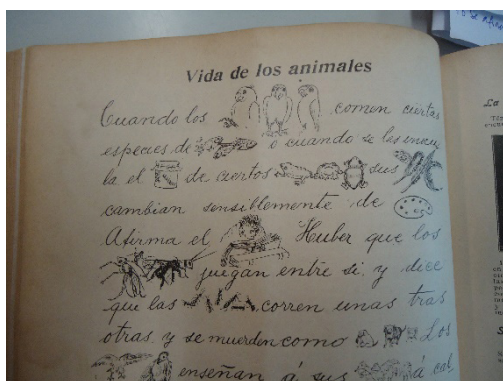 Vida de los animales
Cuando los comen ciertas
especies de o cuando se les inocu
la el de ciertos sus
cambian sensiblemente de
Afirma el Huber que los
juegan entre si y dice
que las corren unas tras
otras y se muerden como Los
enseñan á sus á cal